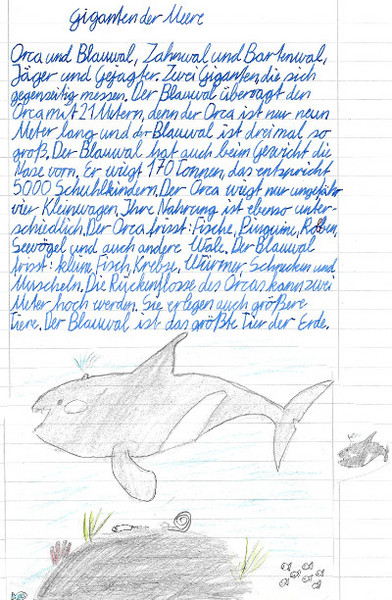 Giganten der Meere
Orca und Blauwal, Zahnwal und Bartenwal,
Jäger und Gejagter. Zwei Giganten, die sich
gegenseitig messen. Der Blauwal überragt den
Orca mit 21 Metern, denn der Orca ist nur neun
Meter lang und der Blauwal ist dreimal so
groß. Der Blauwal hat auch beim Gewicht die
Nase vorn. Er wiegt 170 Tonnen, das entspricht
5000 Schuhlkindern. Der Orca wiegt nur ungefähr
vier Kleinwagen. Ihre Nahrung ist ebenso unter-
schiedlich. Der Orca frisst: Fische, Pinguine, Robben,
Seevögel und auch andere Wale. Der Blauwal
frisst: kleine Fisch, Krebse, Würmer, Schnecken und
Muscheln. Die Rückenflosse des Orcas kann zwei
Meter hoch werden. Sie erlegen auch größere
Tiere. Der Blauwal ist das größte Tier der Erde.